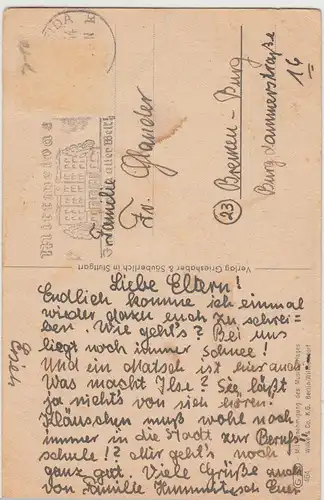 Liebe Eltern!
Endlich komme ich einmal
wieder dazu euch zu schrei-
ben. Wie geht's? Bei uns
liegt noch immer Schnee!
Und ein Matsch ist hier auch
Was macht Ilse? Sie läßt
ja nichts von sich hören.
Kläuschen muß wohl noch
immer in die Stadt zur Berufs-
schule!? Mir geht's noch
ganz gut. Viele Grüße auch
von Familie Euer
Erich
Familie
Fr. Glander
(23) Bremen-Burg
Burgdammerstraße
16
in aller Welt
Verlag Grieshaber & Säuberlich in Stuttgart
Mit Genehmigung des Musikverlages